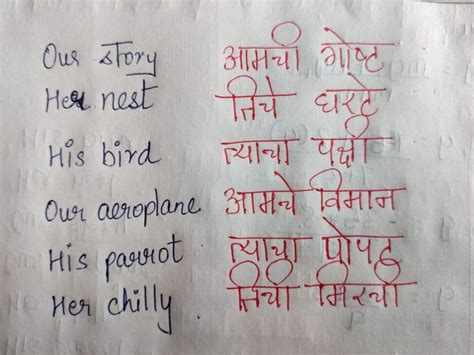 Our story आमची गोष्ट
Her nest तिचे घरटे
His bird त्याचा पक्षी
Our aeroplane आमचे विमान
His parrot त्याचा पोपट
Her chilly तिची मिरची